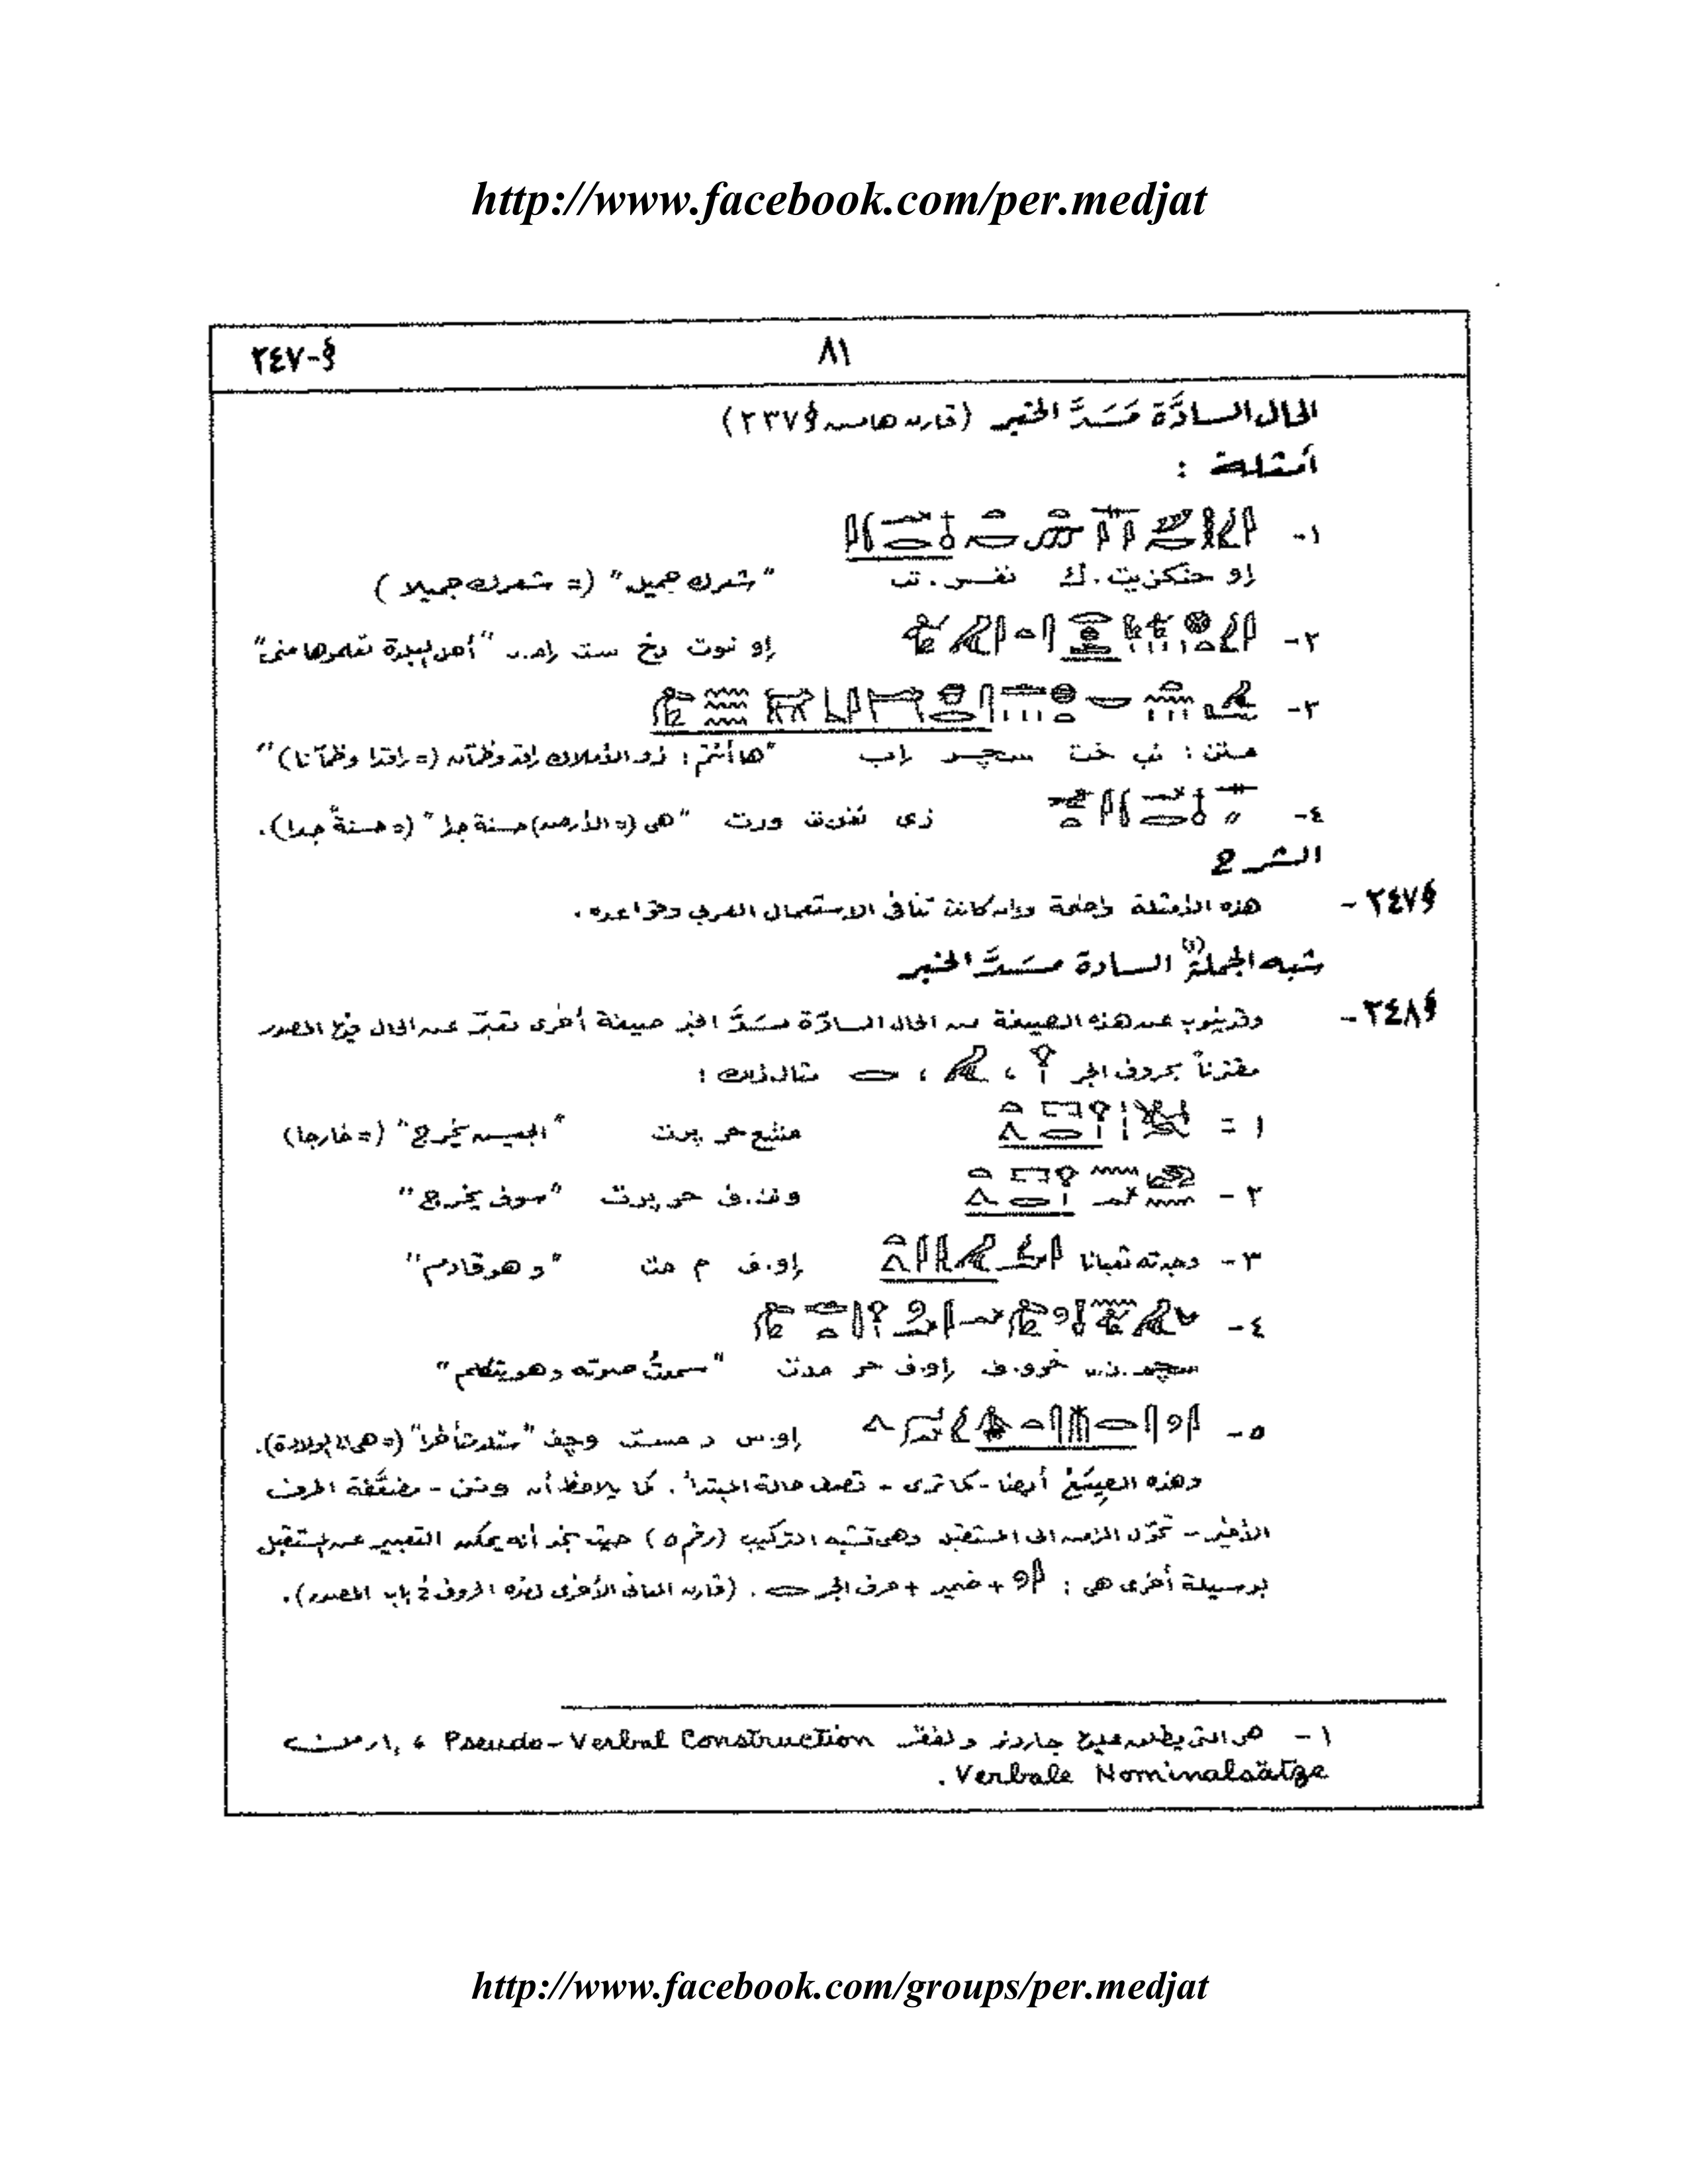 http://www.facebook.com/per.medjat
§-٢٤٧
٨١
الحال السادَّة مَسَدَّ الخبر (قارن هامش §٢٣٧)
أمثلة :
١-
إو حنكزيت.ك نفس.تى "شعرك جميل" (= شعرك جميلا)
٢- إو نوت رخ ست "أهل البلدة تعلموها منى"
٣-
متن : نب خت سچر إب "ها أنتم : ذو الأملاك راقد وظمآن (= راقدا وظمآنا)"
٤- زى نفرت ورت "هى (= الأرض) حسنة جدا" (= حسنةً جدا).
الشرح
§٢٤٧- هذه الأمثلة واضحة وإن كانت تنافى الاستعمال العربي وقواعده.
شبه الجملة(١) السادة مسَدَّ الخبر
§٢٤٨- وقد ينوب عن هذه الصيغة من الحال السادّة مسَدَّ الخبر صيغة أخرى تعبّر عن الحال فيها المصدر
مقترناً بحروف الجر ، ، مثال ذلك :
١ = منفع حر پرت "الجيش يخرج" (= خارجا)
٢- ونن.ف حر پرت "سوف يخرج"
٣- وجدته ثعبانا إو.ف م "وهو قادم"
٤-
سچم.ن.ى خرو.ف إو.ف حر مدت "سمعتُ صوته وهو يتكلم"
٥- إو.س ر مست "ستلد" (= هى للولادة).
وهذه الصِيَغُ أيضا - كما ترى - تصف حالة المبتدأ. كما يلاحظ أن ونن - مضعَّفة الحرف
الأخير - تحوّل الزمن الى المستقبل وهى تشبه التركيب (رقم ٥) حيث نجد أنه يمكن التعبير عن المستقبل
بوسيلة أخرى هى : + ضمير + حرف الجر . (قارن المعانى الأخرى لهذه الحروف فى باب المصدر).
١- هى التى يطلق عليها جاردنر ولفڤر Pseudo-Verbal Construction ، إرمن
Verbale Nominalsätze.
http://www.facebook.com/groups/per.medjat